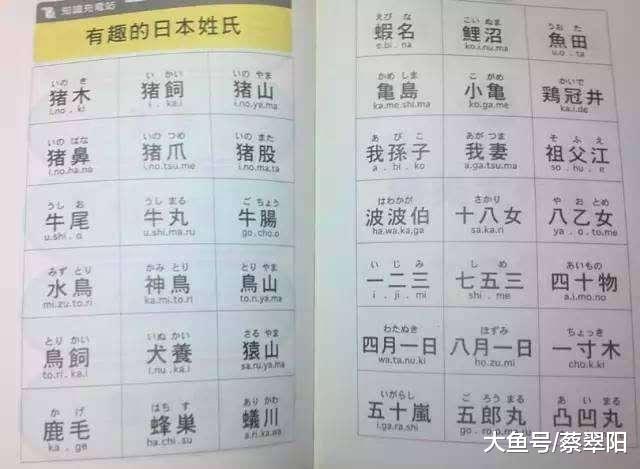 知識充電站
有趣的日本姓氏
いの き いの かい いの やま
猪木 猪飼 猪山
i.no.ki i.ka.i i.no.ya.ma
いの はな いの つめ いの また
猪鼻 猪爪 猪股
i.no.ha.na i.no.tsu.me i.no.ma.ta
うし お うし まる ご ちょう
牛尾 牛丸 牛腸
u.shi.o u.shi.ma.ru go.cho.o
みず とり かみ とり とり やま
水鳥 神鳥 鳥山
mi.zu.to.ri ka.mi.to.ri to.ri.ya.ma
とり かい いぬ かい さる やま
鳥飼 犬養 猿山
to.ri.ka.i i.nu.ka.i sa.ru.ya.ma
か げ はち す あり かわ
鹿毛 蜂巣 蟻川
ka.ge ha.chi.su a.ri.ka.wa
えび な こい ぬま うお た
蝦名 鯉沼 魚田
e.bi.na ko.i.nu.ma u.o.ta
かめ しま こ がめ かいで
亀島 小亀 鶏冠井
ka.me.shi.ma ko.ga.me ka.i.de
あ び こ あが つま そ ふ え
我孫子 我妻 祖父江
a.bi.ko a.ga.tsu.ma so.hu.e
はわかが さかり や おと め
波波伯 十八女 八乙女
ha.wa.ka.ga sa.ka.ri ya.o.to.me
い じ み し め あいもの
一二三 七五三 四十物
i.ji.mi shi.me a.i.mo.no
わたぬき ほずみ ちょっき
四月一日 八月一日 一寸木
wa.ta.nu.ki ho.zu.mi cho.k.ki
いがらし ご ろう まる あ い まる
五十嵐 五郎丸 凸凹丸
i.ga.ra.shi a.i.ma.ru
大鱼号/蔡翠阳